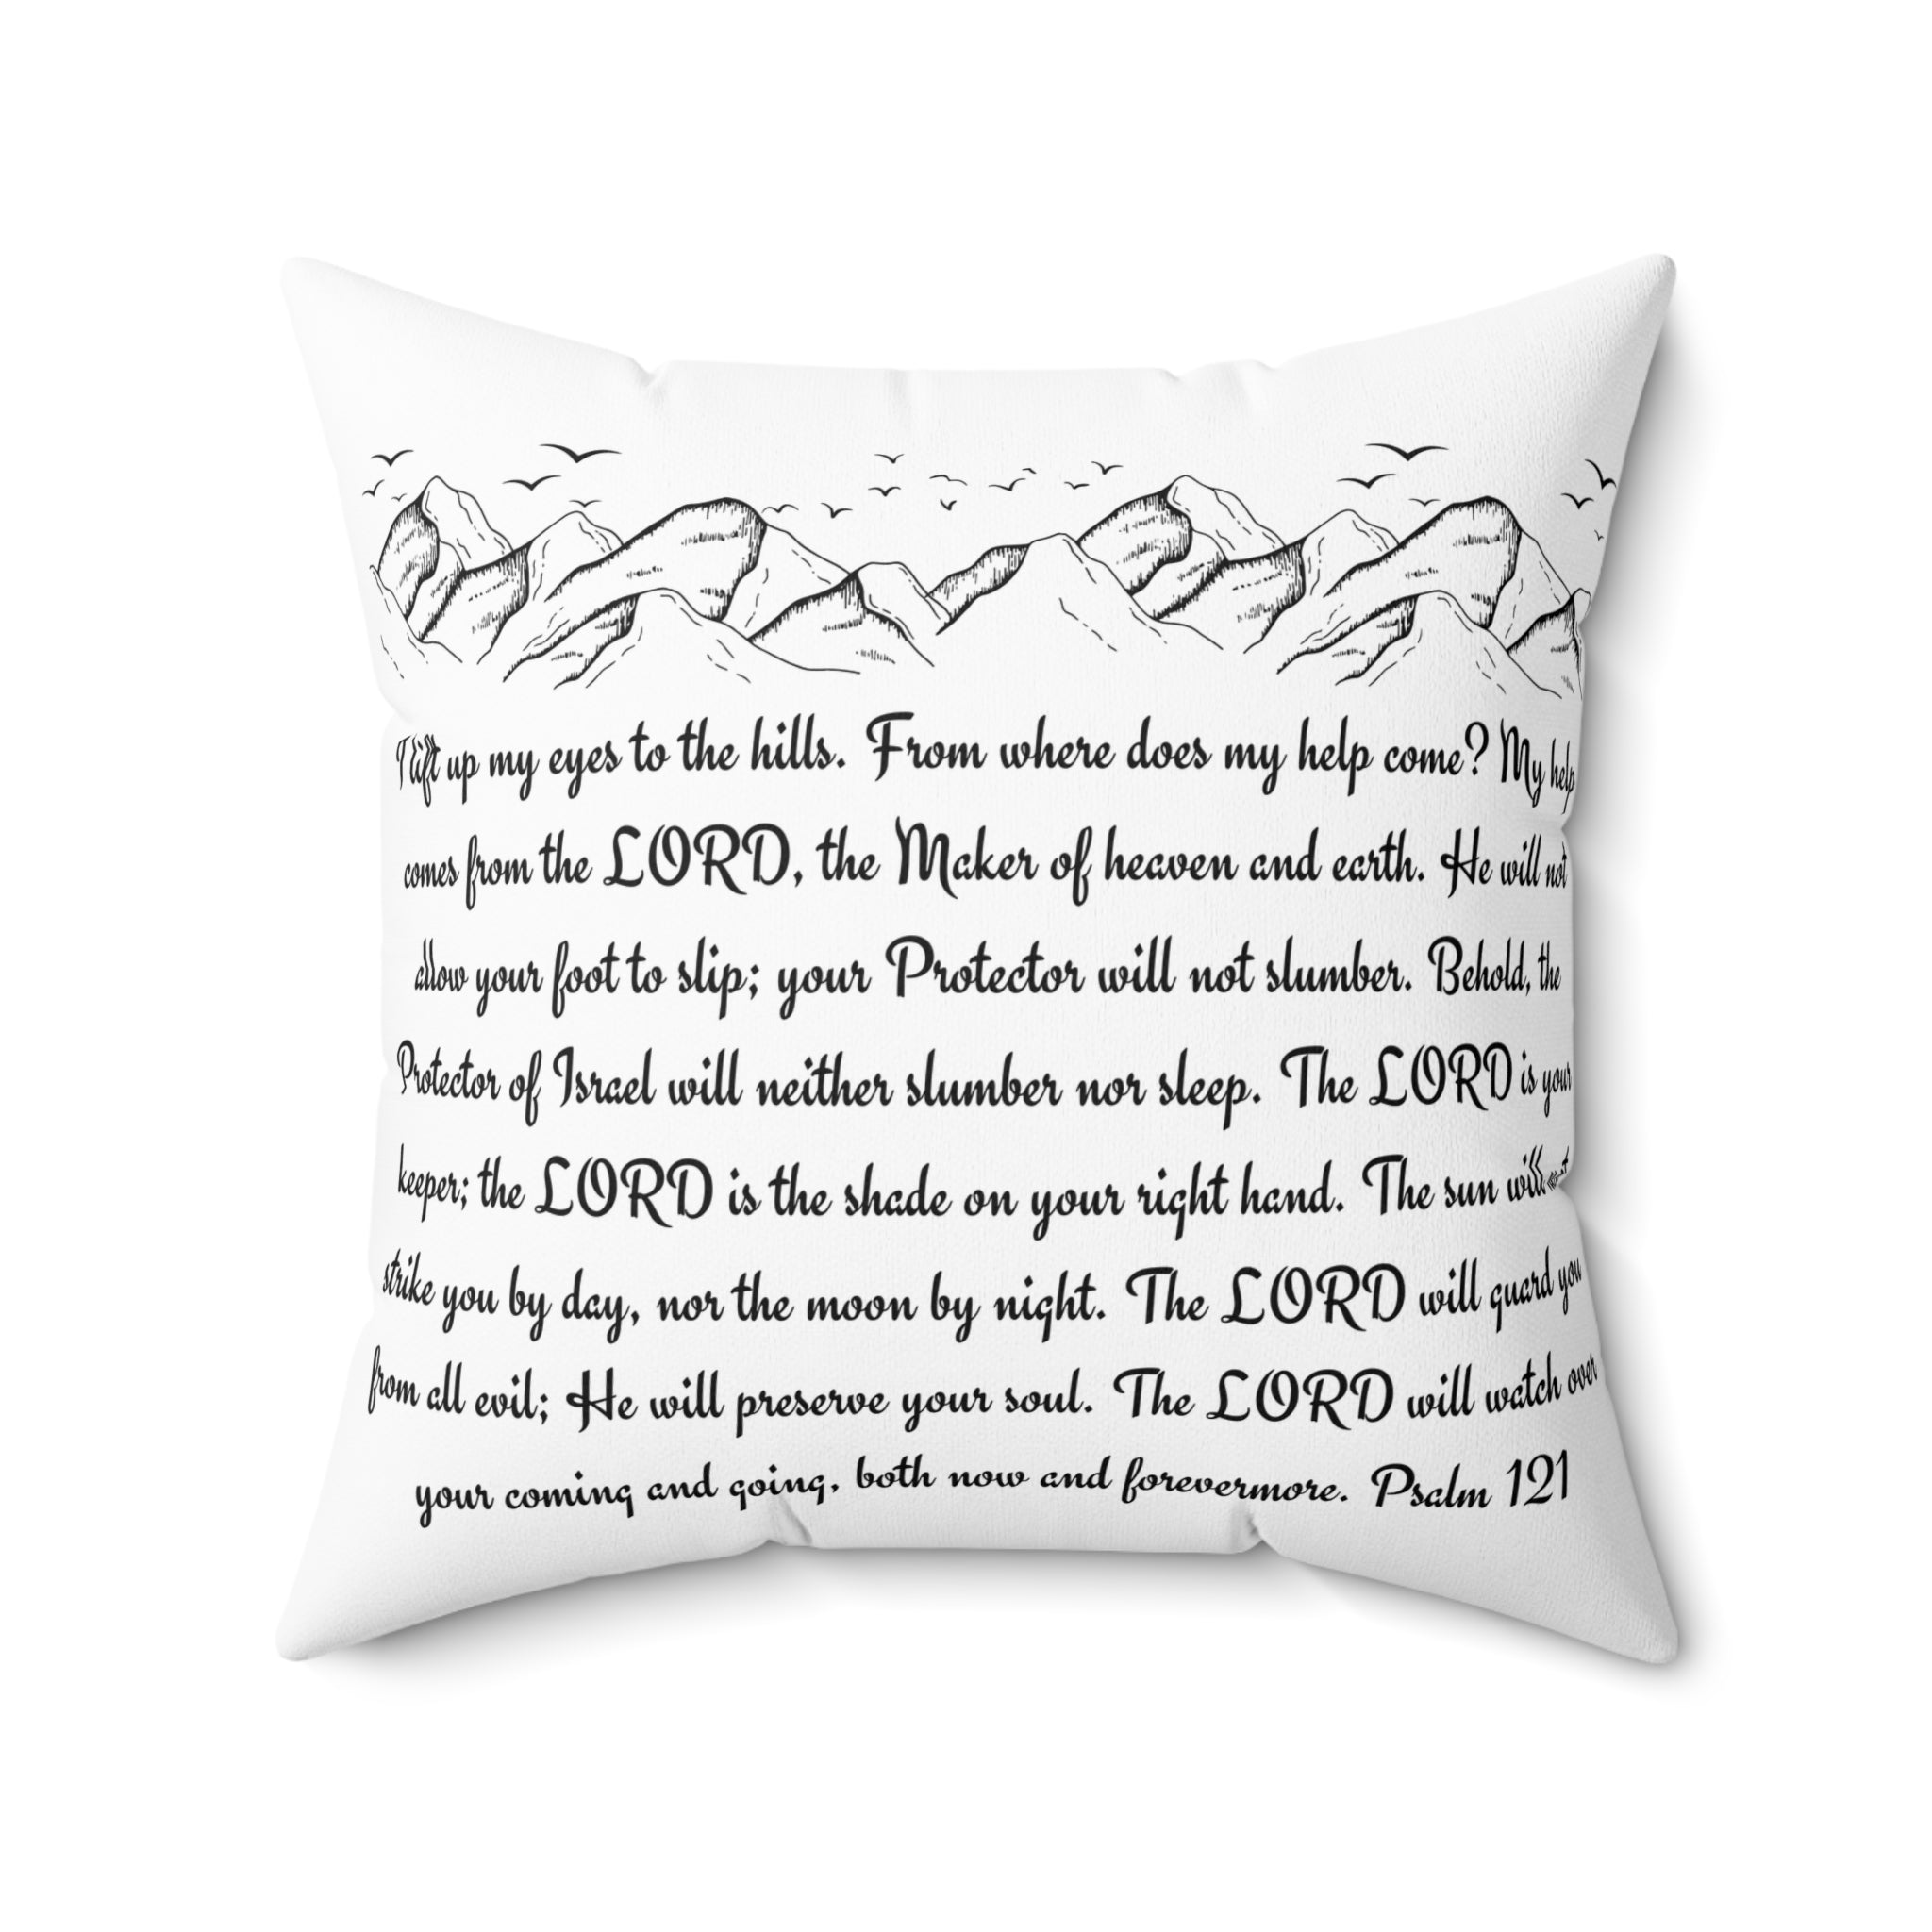 I lift up my eyes to the hills. From where does my help come? My help
comes from the LORD, the Maker of heaven and earth. He will not
allow your foot to slip; your Protector will not slumber. Behold, the
Protector of Israel will neither slumber nor sleep. The LORD is your
keeper; the LORD is the shade on your right hand. The sun will
strike you by day, nor the moon by night. The LORD will guard you
from all evil; He will preserve your soul. The LORD will watch over
your coming and going, both now and forevermore. Psalm 121